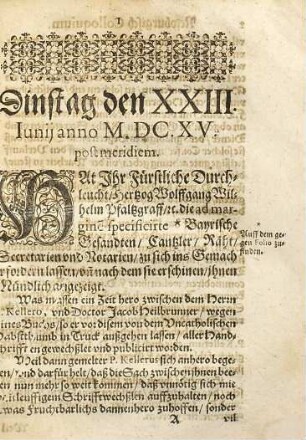 Dinstag den XXIII.
Iunij anno M. DC. XV.
post meridiem.
HAt Ihr Fürstliche Durch-
leucht / Hertzog Wolffgang Wil-
helm Pfaltzgraff / ꝛc. die ad mar-
gine specificirte * Bayrische
Gesandten / Cantzler / Räht /
Secretarien vnd Notarien / zu sich ins Gemach
erfordern lassen / vñ nach dem sie erschinen / ihnen
Mündlich angezeigt.
* Auff dem ge-
gen Folio zu-
finden.
Was massen ein Zeit hero zwischen dem Herrn
Kellero, vnd Doctor Jacob Heilbrunner / wegen
eines Buchs / so er vor disem von
Vncatholischen
Babstthumb in Truck außgehen lassen / aller Hand-
schrifften gewechßlet vnd publiciert worden.
Weil dann gemelter P. Kellerus sich anhero bege-
ben / vnd darfür helt / daß die Sach zwischen ihnen bee-
den nun mehr so weit kommen / daß vnnötig sich mit
weitleuffigem Schrifftwechßlen auffzuhalten / noch
was Fruchtbarlichs dannenhero zuhoffen / sonder
A
vil